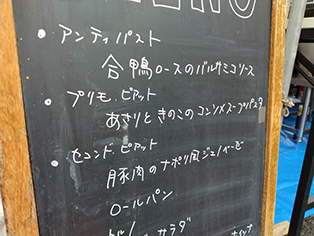 アンティパスト
合鴨ロースのバルサミコソース
プリモ・ピアット
あさりときのこのコンソメスープパスタ
セコンド・ピアット
豚肉のナポリ風ジェノベーゼ
ロールパン
サラダ